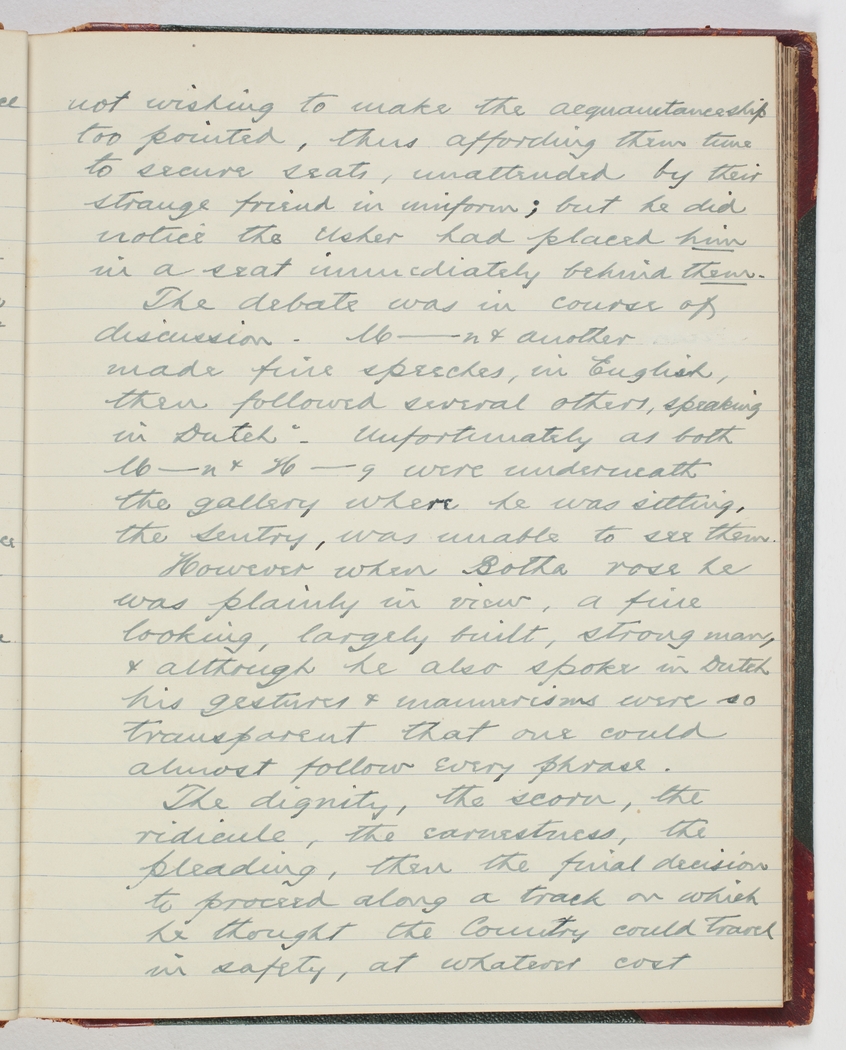 not wishing to make the acquaintanceship
too pointed, thus affording them time
to secure seats, unattended by their
strange friend in uniform; but he did
notice the Usher had placed him
in a seat immediately behind them.
The debate was in course of
discussion. M——n & another
made fine speeches, in English,
then followed several others, speaking
in Dutch". Unfortunately as both
M—n & H—g were underneath
the gallery where he was sitting,
the sentry, was unable to see them.
However when Botha rose he
was plainly in view, a fine
looking, largely built, strong man,
& although he also spoke in Dutch
his gestures & mannerisms were so
transparent that one could
almost follow every phrase.
The dignity, the scorn, the
ridicule, the earnestness, the
pleading, then the final decision
to proceed along a track on which
he thought the Country could travel
in safety, at whatever cost